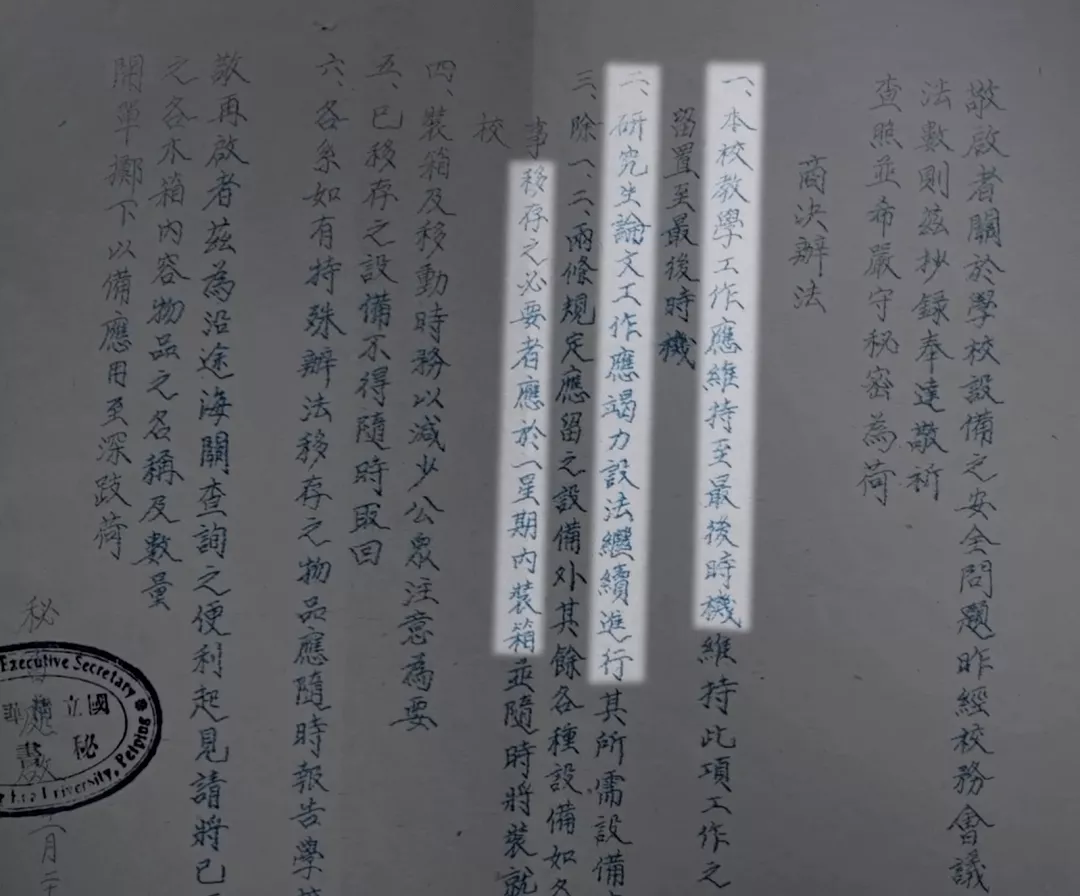 敬啟者關於學校設備之安全問題昨經校務會議
法數則茲抄録奉達敬祈
查照並希嚴守秘密為荷
商决辦法
一、本校教學工作應維持至最後時機維持此項工作之
留置至最後時機
二、研究生論文工作應竭力設法繼續進行其所需設備
三、除一、二、兩條規定應留之設備外其餘各種設備如
事移存之必要者應於一星期内裝箱並隨時將裝就
校
四、裝箱及移動時務以減少公眾注意為要
五、已移存之設備不得隨時取回
六、各系如有特殊辦法移存之物品應隨時報告學
敬再啟者茲為沿途海關查詢之便利起見請將已
之各木箱内容物品之名稱及數量
開單擲下以備應用至深跂荷
秘處啟
二月二十
Executive Secretary
國立
秘
University, Peiping